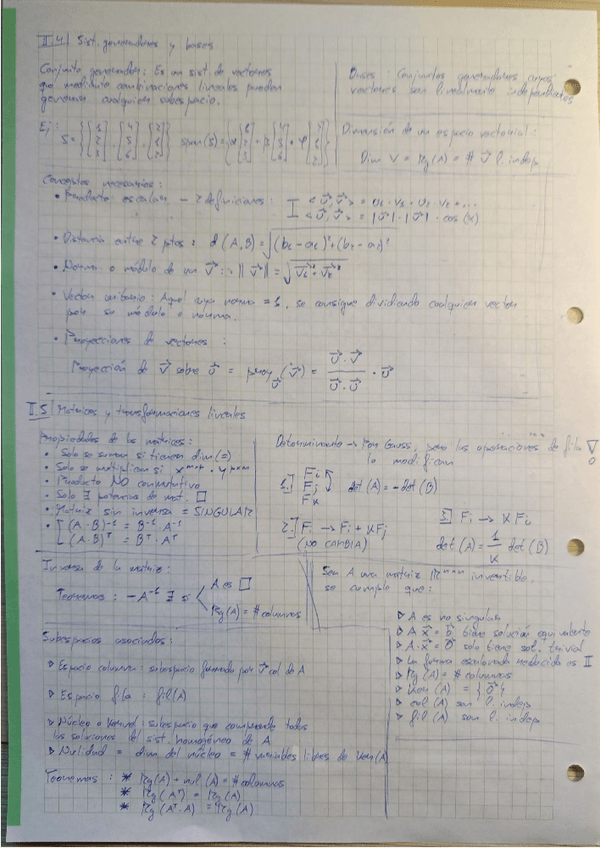 II.4 Sist. generadores y bases
Conjunto generador: Es un sist. de vectores
que mediante combinaciones lineales pueden
generar cualquier subespacio.
Bases: Conjuntos generadores cuyos
vectores son linealmente independientes
Ej:
Dimensión de un espacio vectorial:
Dim V = Rg(A) = # v⃗ l. indep.
Conceptos necesarios:
• Producto escalar – 2 definiciones:
<u⃗, v⃗> = |u⃗| · |v⃗| · cos(α)
• Distancia entre 2 ptos: d(A,B) =
• Norma o módulo de un v⃗: ||v⃗|| =
• Vector unitario: Aquel cuya norma = 1, se consigue dividiendo cualquier vector
por su módulo o norma.
• Proyecciones de vectores:
Proyección de v⃗ sobre u⃗ = proy_u⃗ (v⃗) = (u⃗ · v⃗)/(u⃗ · u⃗) · u⃗
II.5 Matrices y transformaciones lineales
Propiedades de las matrices:
• Solo se suman si tienen dim(=)
• Solo se multiplican si
• Producto NO conmutativo
• Solo ∃ potencias de mat. □
• Matriz sin inversa = SINGULAR
• (A·B)⁻¹ = B⁻¹·A⁻¹
(A·B)ᵀ = Bᵀ·Aᵀ
Determinante → Por Gauss, pero las operaciones de fila
lo modifican
1.] Fi Fj Fk det(A) = -det(B)
2.] Fi → Fi + KFj
(NO CAMBIA)
3] Fi → K Fi
det(A) = 1/K det(B)
Inversa de la matriz:
Teoremas: – A⁻¹ ∃ si
A es □
Rg(A) = # columnas
Sea A una matriz ℝ invertible,
se cumple que:
▷ A es no singular
▷ A·x⃗ = b⃗ tiene solución
▷ A·x⃗ = 0⃗ solo tiene sol. trivial
▷ La forma escalonada reducida es I
▷ Rg(A) = # columnas
▷ Ker(A) = {0⃗}
▷ col(A) son l. indep
▷ fil(A) son l. indep
Subespacios asociados:
▷ Espacio columna: subespacio formado por v⃗ col de A
▷ Espacio fila: fil(A)
▷ Núcleo o Kernel: subespacio que comprende todas
las soluciones del sist. homogéneo de A
▷ Nulidad = dim del núcleo = # variables libres de Ker(A)
Teoremas: * Rg(A) + nul(A) = # columnas
* Rg(Aᵀ) = Rg(A)
* Rg(Aᵀ·A) = Rg(A)